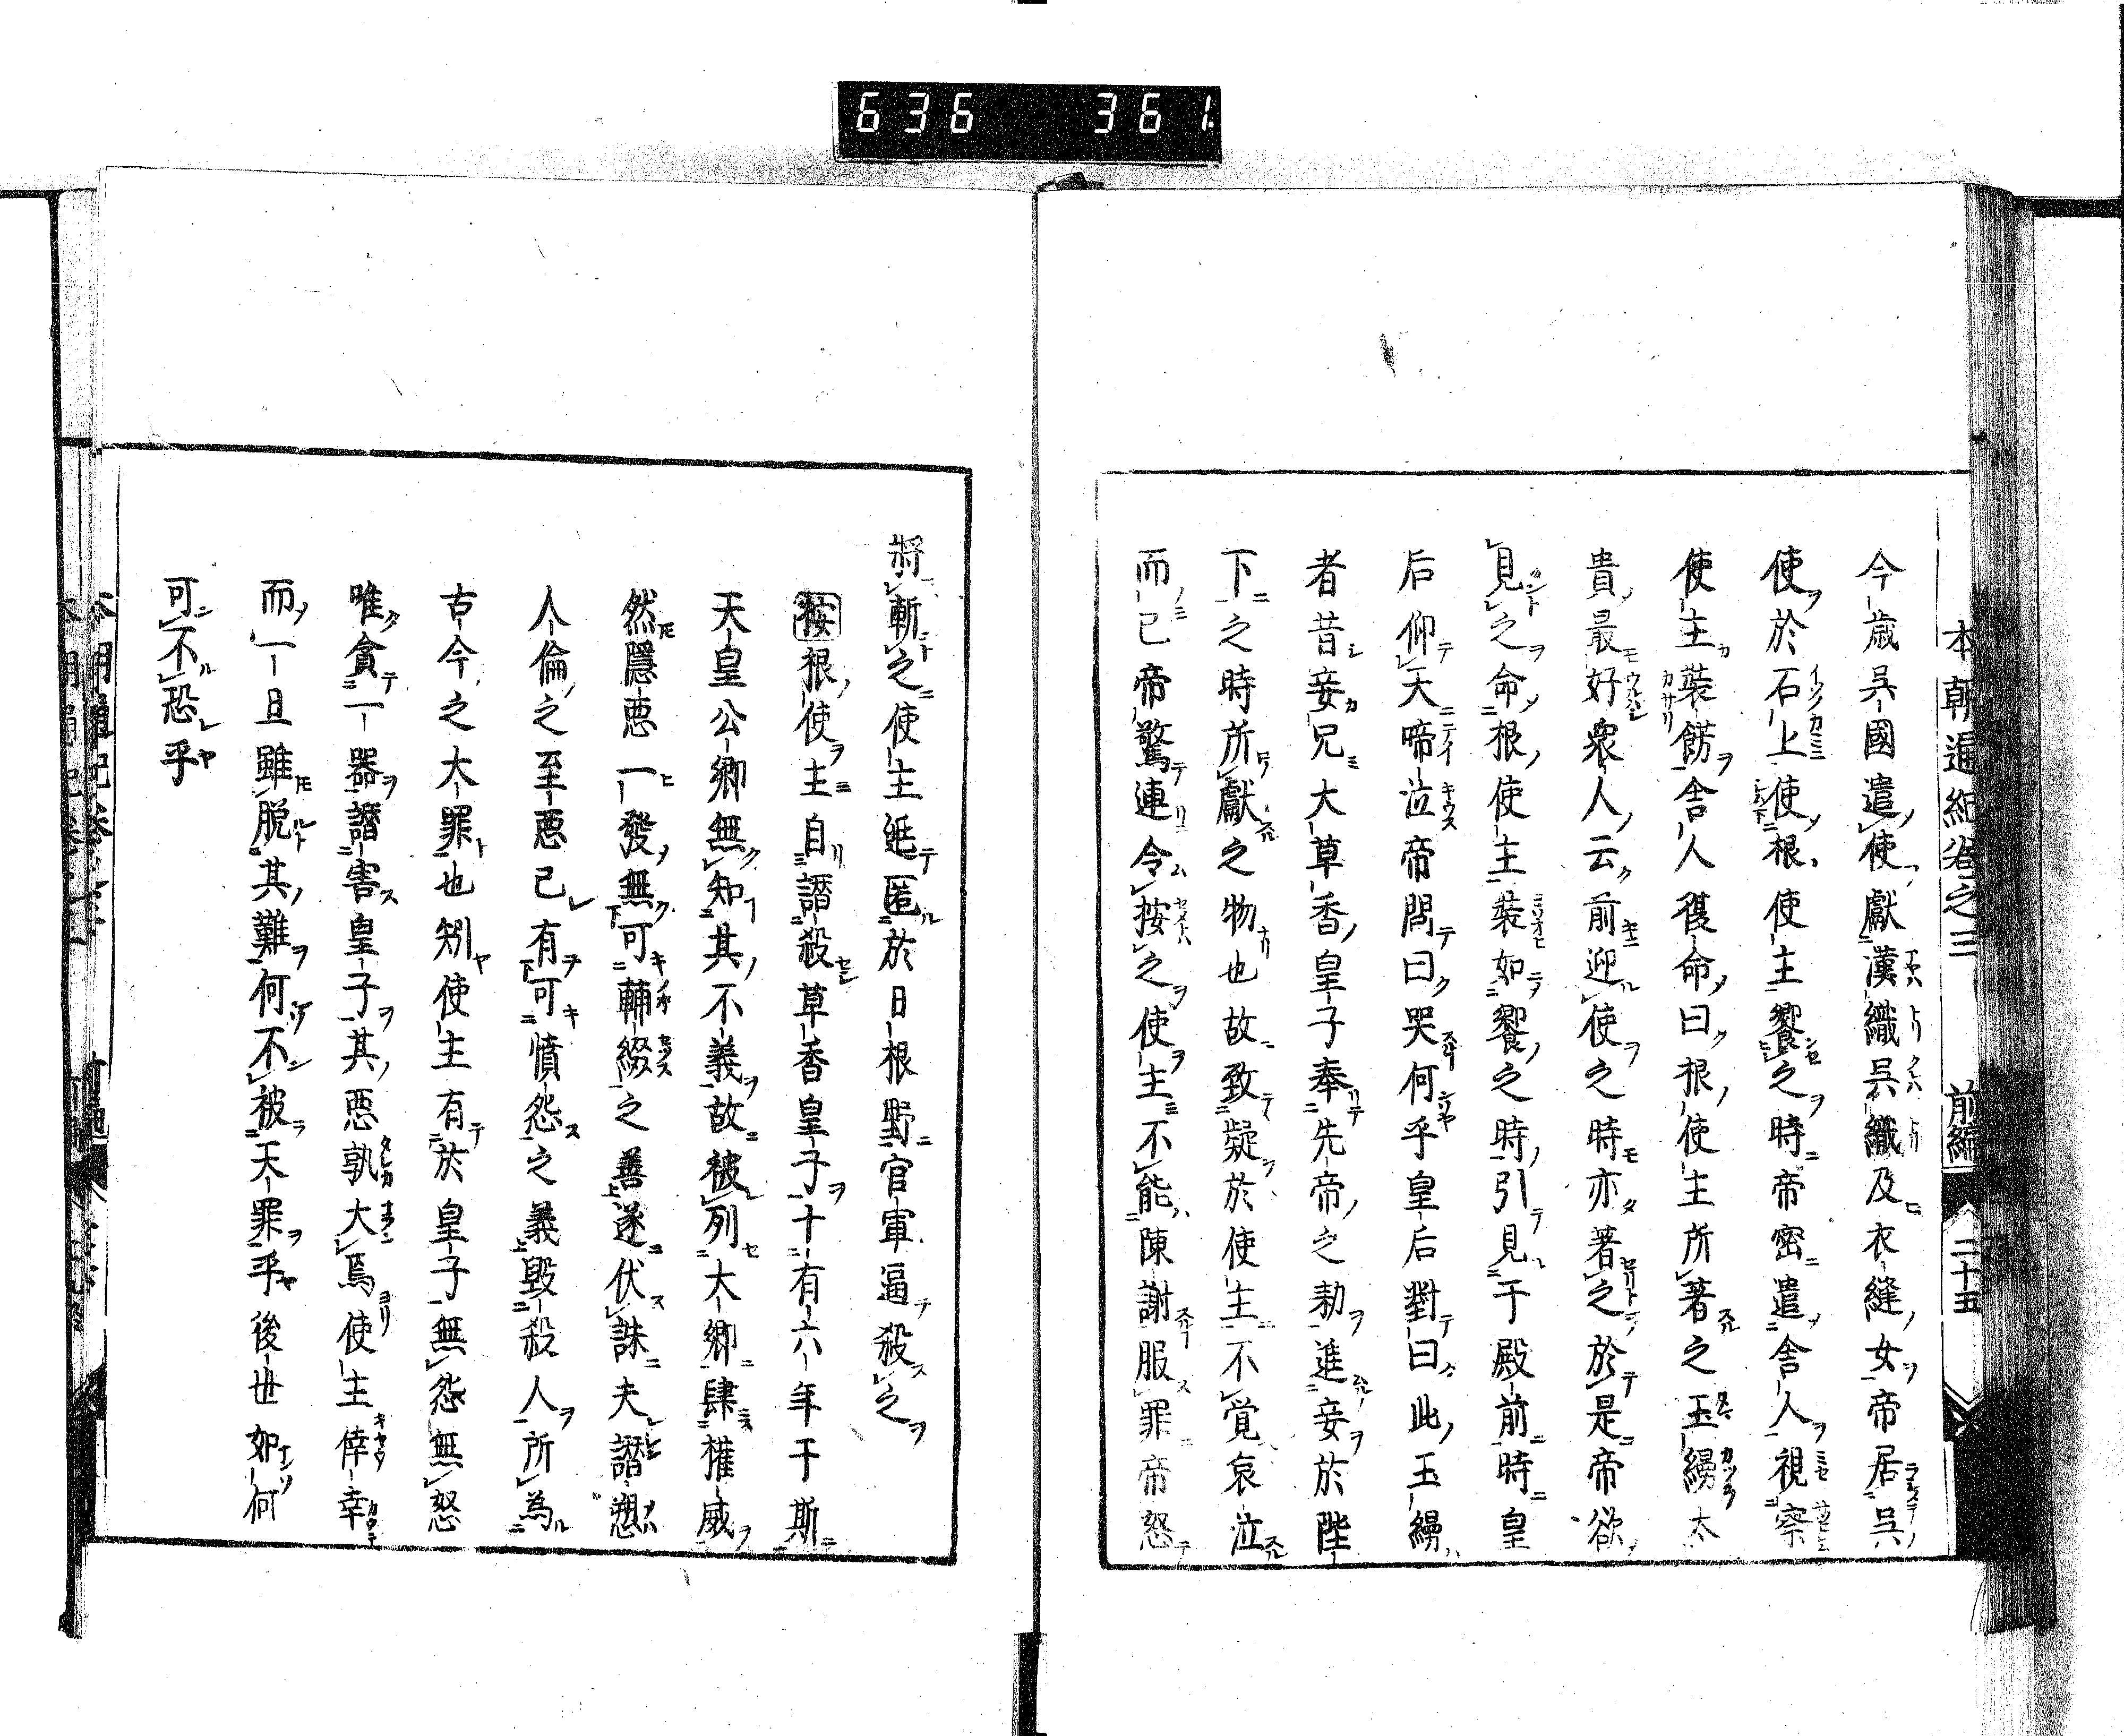 636 361.
本朝通紀卷之三 前編 二十五
今歳呉國遣使獻漢織呉織及衣縫女帝居呉
使於石上使根使主饗之時帝密遣舎人視察
使主裝餝舎人復命曰根使主所著之玉縵太
貴最好衆人云前迎使之時亦著之於是帝欲
見之命根使主裝如饗之時引見于殿前時皇
后仰天啼泣帝問曰哭何乎皇后對曰此玉縵
者昔妾兄大草香皇子奉先帝之勅進妾於陛
下之時所獻之物也故致疑於使主不覚哀泣
而已帝驚連令按之使主不能陳謝服罪帝怒
將斬之使主逃匿於日根野官軍逼殺之
按根使主自譖殺草香皇子十有六年于斯
天皇公卿無知其不義故被列大卿肆権威
然隱悪一發無可輔綴之善遂伏誅夫譖愬
人倫之至悪已有可憤怨之義毀殺人所為
古今之大罪也矧使主有於皇子無怨無怒
唯貪一器譖害皇子其悪孰大焉使主倖幸
而一旦雖脱其難何不被天罪乎後世如何
可不恐乎